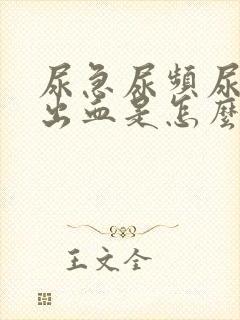 尿急尿頻尿
出血是怎麼
王文全